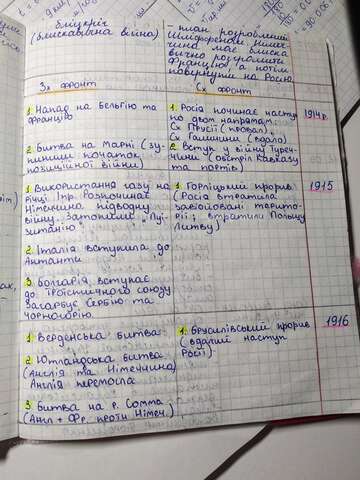 бліцкріг
(блискавична війна)
- план розроблений
Шліффеном. Німеч-
чина має блиска
вично розгромити
Францію, а потім
повернути на Росію
Зх фронт
Сх фронт
1. Напад на Бельгію та
Францію
2. Битва на Марні (зу-
пинили початок
позиційної війни)
1. Росія починає наступ
по двом напрямам
Сх Прусії (провал)
Сх Галичини (вдало)
2. Вступ у війну Туреч-
чини (обстріл Кавказу
та портів)
1914р.
1. Використання газу на
річці Іпр. Розпочинає
Німеччина підводну
війну. Затопили „Лу-
зитанію"
2. Італія вступила до
Антанти
3. Болгарія вступає
до троїстичного союзу
Загарбує Сербію та
Чорногорію.
1. Горліцький прорив
(Росія втратила
завойовані терито-
рії; втратили Польщу
Литву)
1915
1. Верденська битва
2. Ютландська битва
(Англія та Німеччина)
Англія перемогла
3. Битва на р. Сомма
(Англ + Фр. проти Німеч.)
1. Брусилівський прорив
(вдалий наступ
Росії)
1916